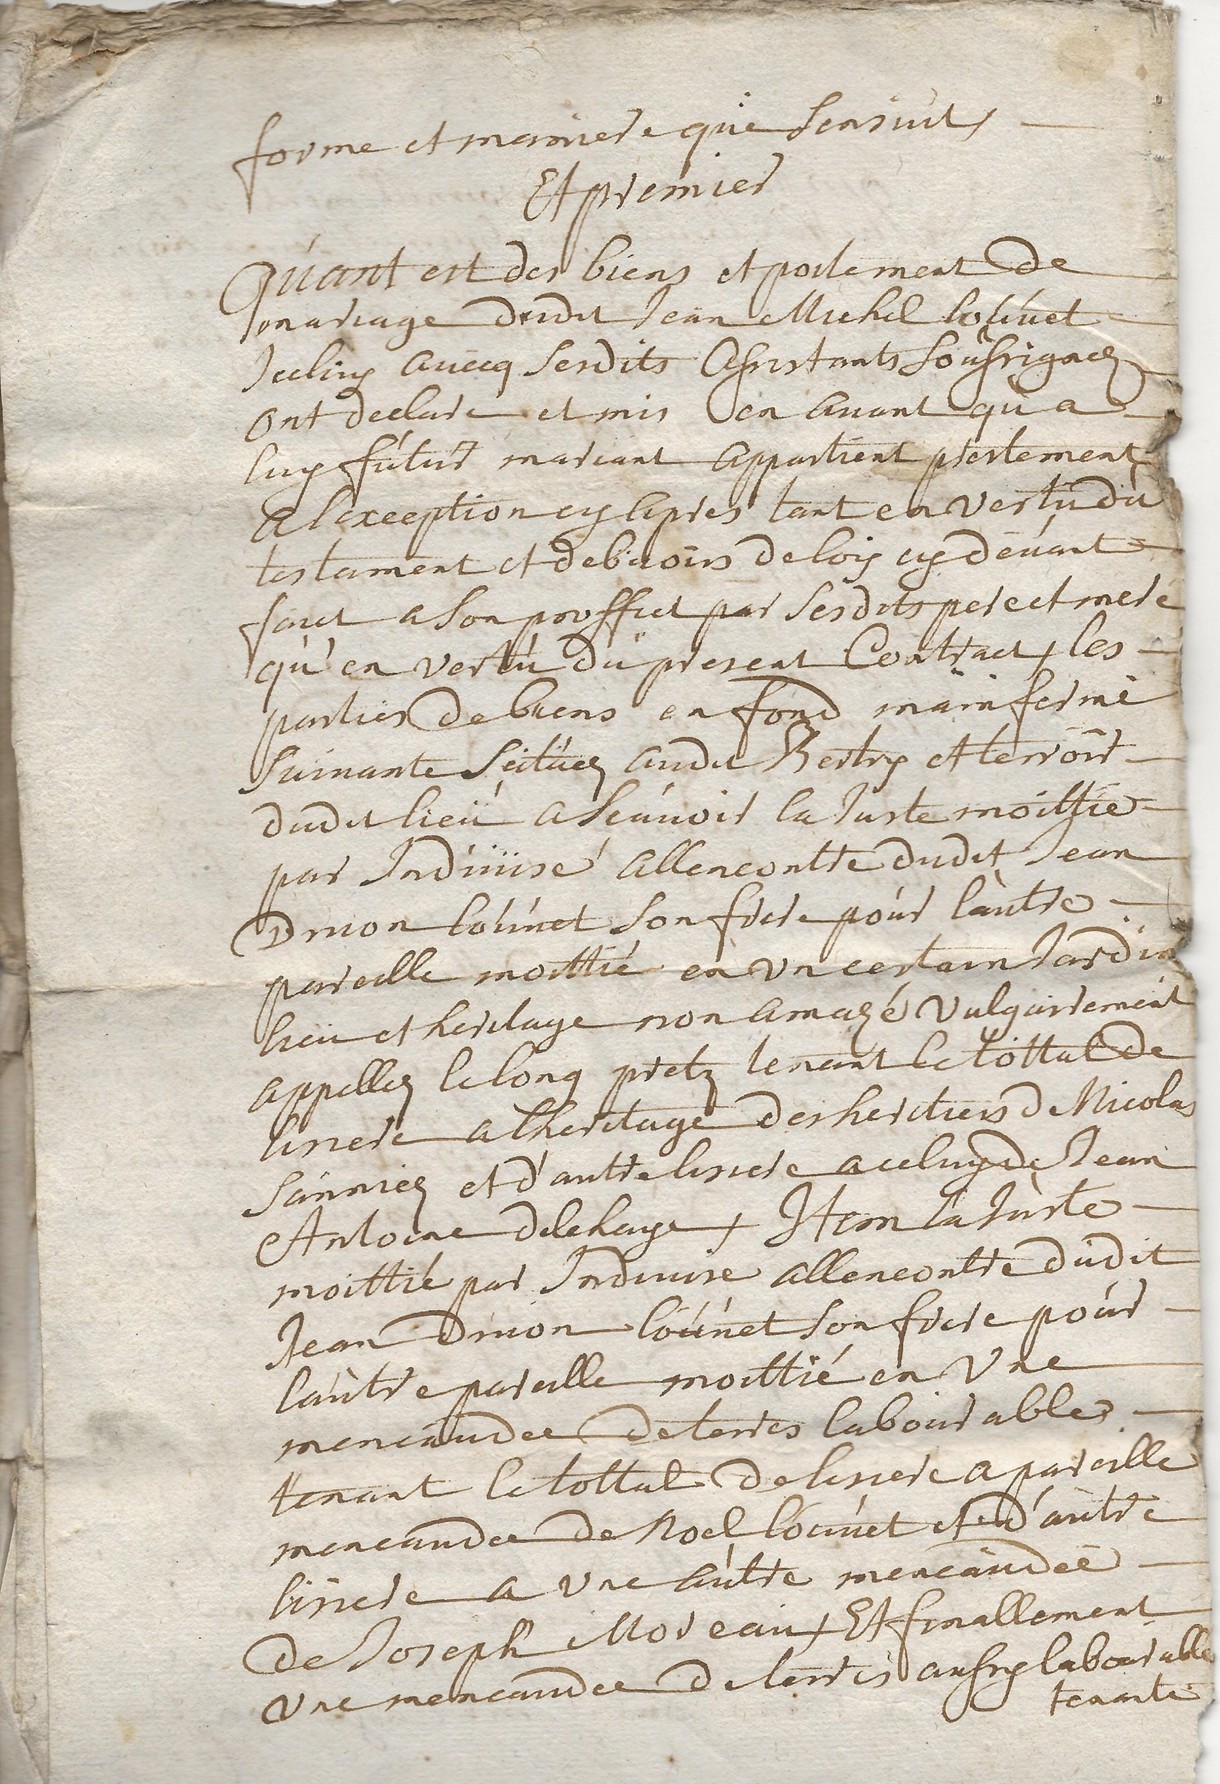 forme et maniere que sensuit /
Et premier
Quant est des biens et portement de
mariage dudit Jean Michel Lounet
Iceluy avecq sesdits Assistants soussignez
ont declaré et mis en avant qu'a
luy futur mariant appartient presentement
a lexception cy apres tant en vertu du
testament et debvoirs de loix cy devant
fait a son proffit par sesdits pere et mere
qu'en vertu du present Contract, les
parties de biens en fond mainferme
suivante scituez audit Bertry et terroir
dudit lieu a scavoir la Juste moittie
par Indivise allencontre dudit Jean
Druon Lounet son frere pour lautre
pareille moittié en un certain Jardin
lieu et heritage non amazé vulgairement
appellez le long pretz tenant le tottal de
lisiere a lheritage des heritiers de Nicolas
et d'autre lisiere a celuy de Jean
Antoine delehaye, Item la Juste
moittié par Indivise allencontre dudit
Jean Druon Lounet son frere pour
lautre pareille moittié en Une
mencaudee de terres labourables
tenant le tottal de lisiere a pareille
mencaudee de Noel Lounet et d'autre
lisiere a une autre mencaudee
de Joseph Moreau, Et finallement
une mencaudee de terres aussy labourable
tenante